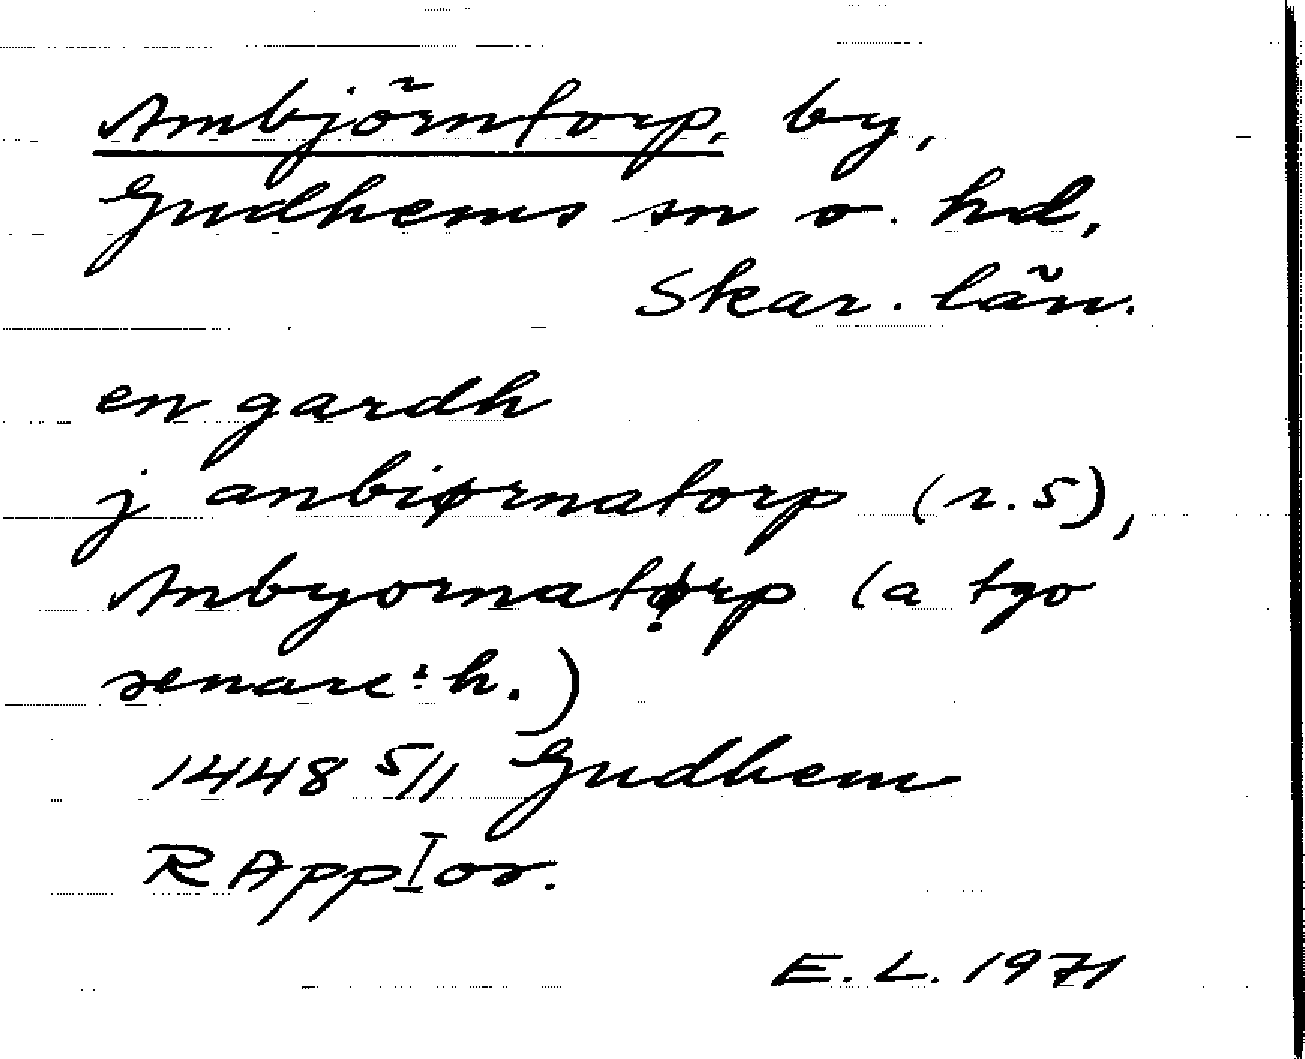 Ambjörntorp, by,
Gudhems sn o. hd,
Skar. län.
en gardh
j anbiørnatorp (r. 5),
Anbyornatørp (a tgo
senare: h.)
1448 5/11 Gudhem
RAppIor.
E. L. 1971